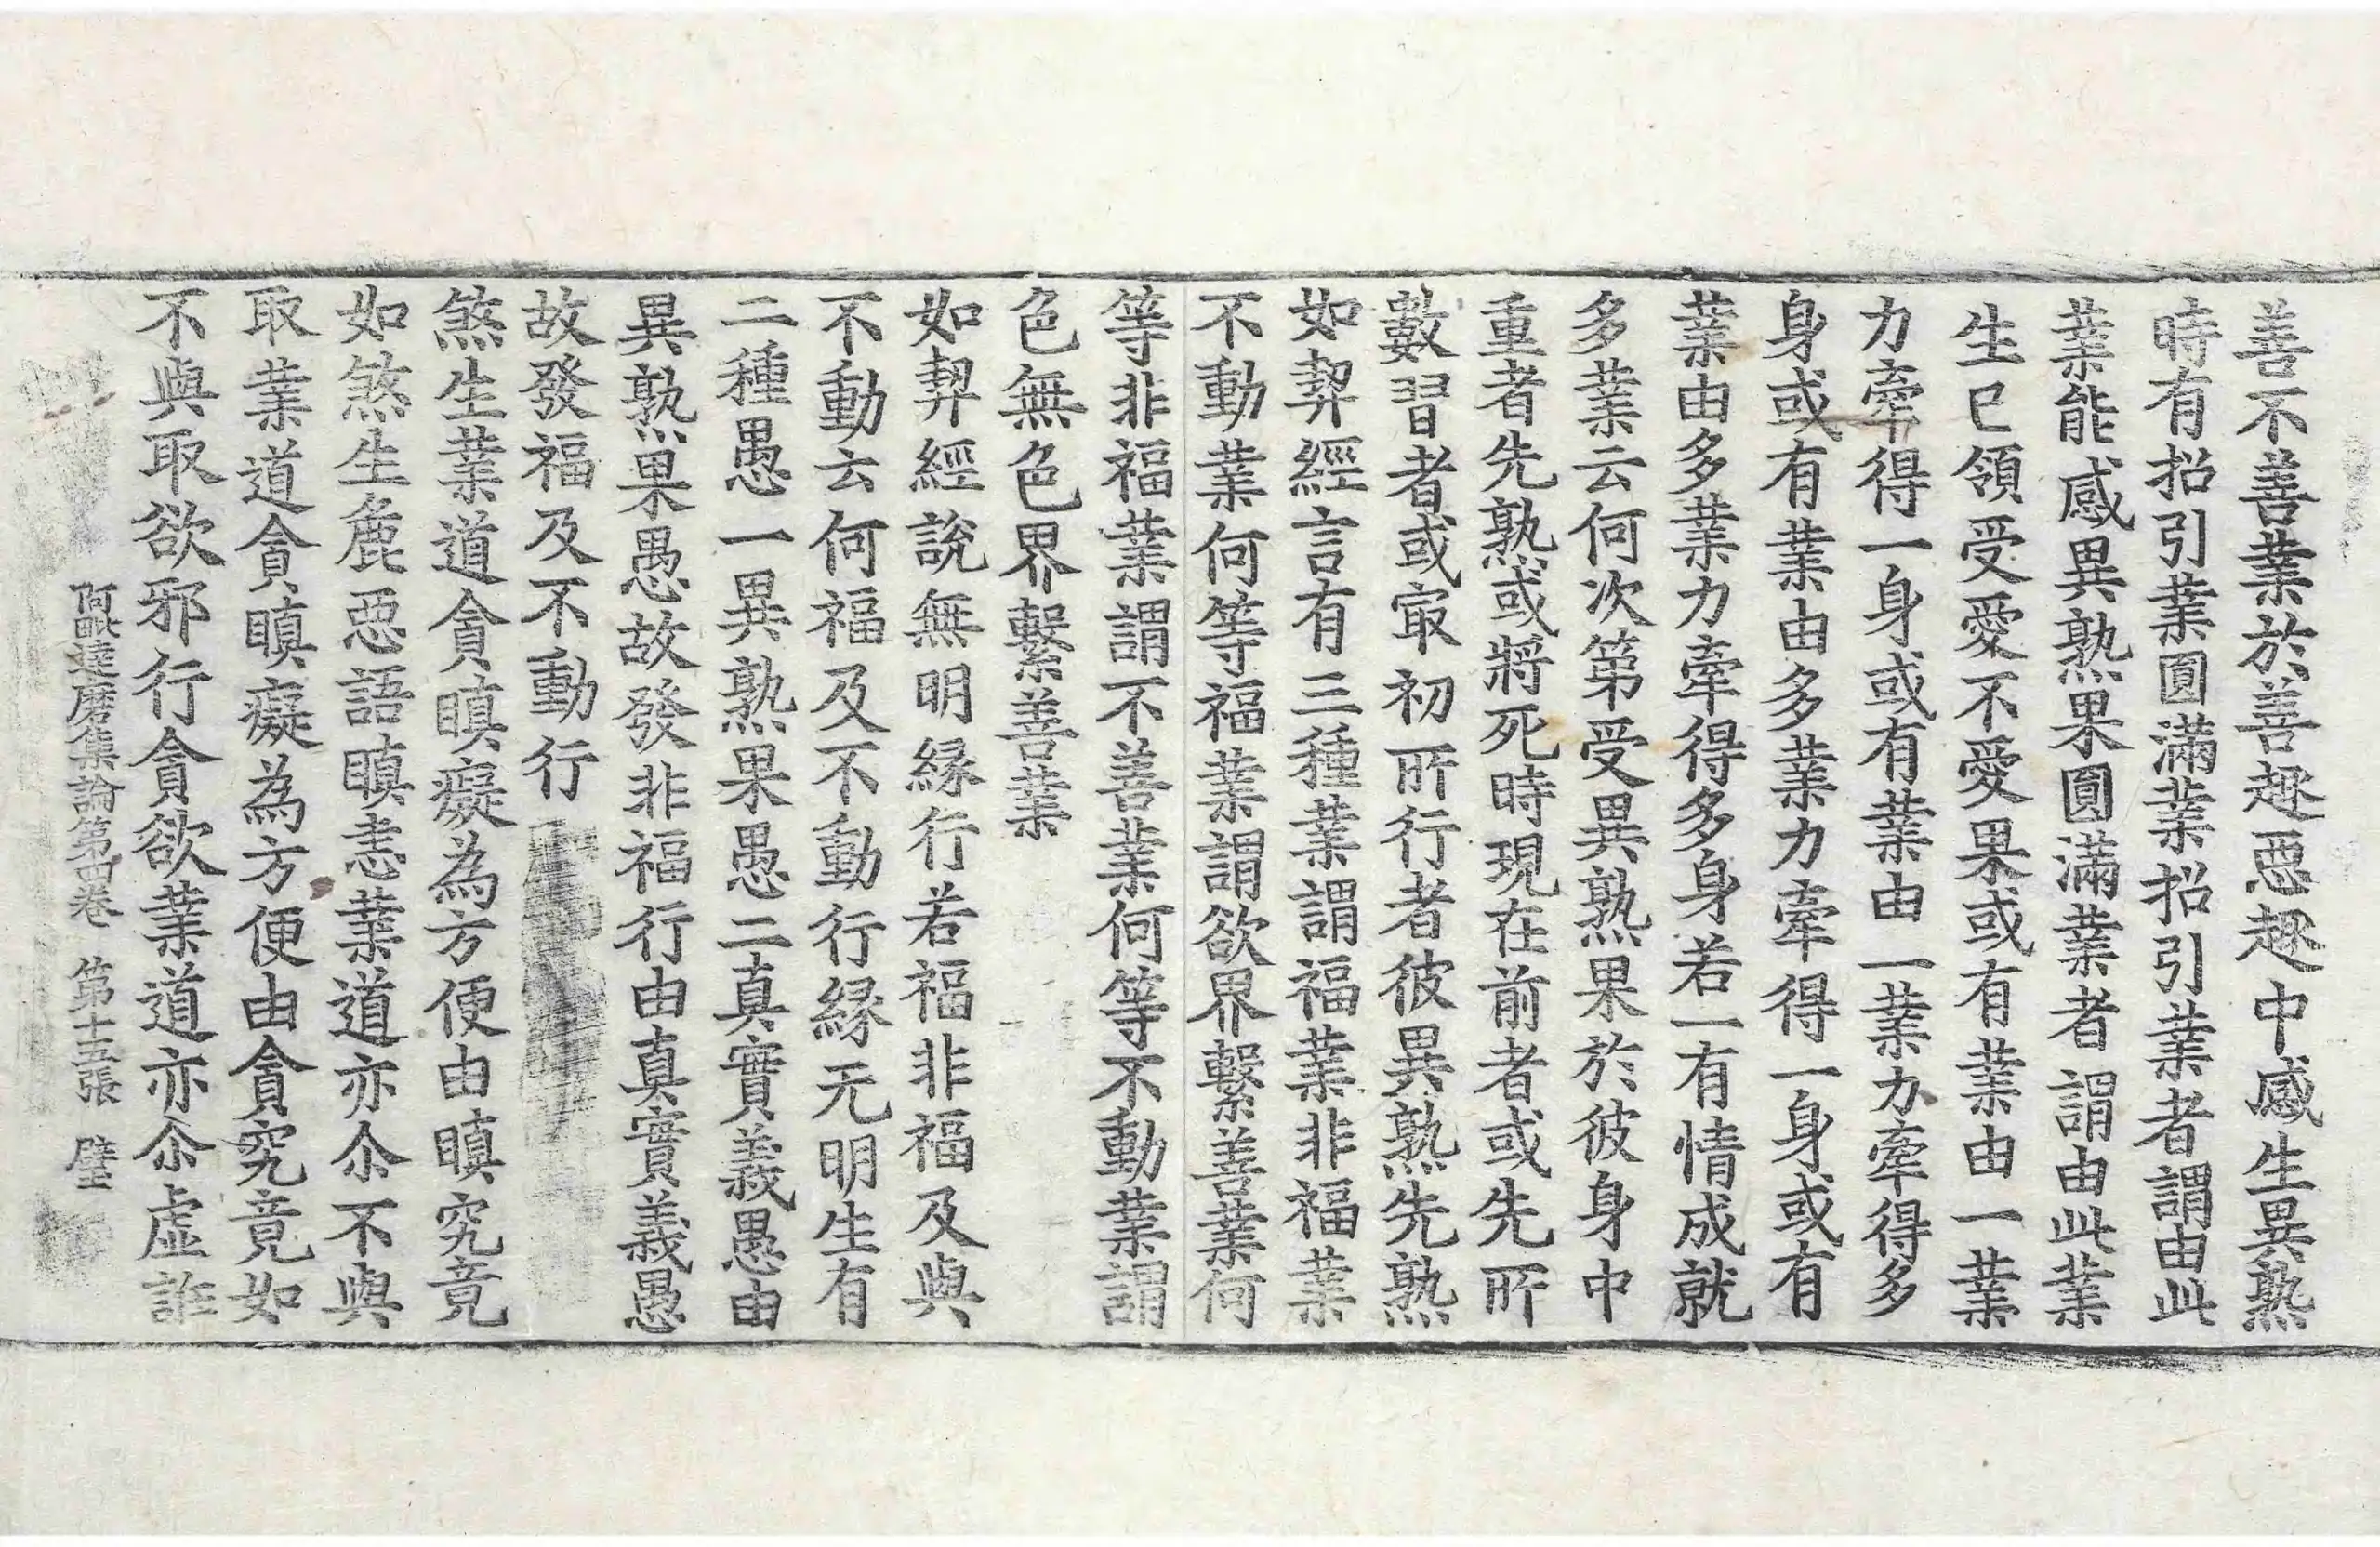 善不善業於善趣惡趣中感生異熟
時有招引業圓滿業招引業者謂由此
業能感異熟果圓滿業者謂由此業
生已領受愛不愛果或有業由一業
力牽得一身或有業由一業力牽得多
身或有業由多業力牽得一身或有
業由多業力牽得多身若一有情成就
多業云何次第受異熟果於彼身中
重者先熟或將死時現在前者或先所
數習者或冣初所行者彼異熟先熟
如契經言有三種業謂福業非福業
不動業何等福業謂欲界繫善業何
等非福業謂不善業何等不動業謂
色無色界繫善業
如契經說無明緣行若福非福及與
不動云何福及不動行緣无明生有
二種愚一異熟果愚二真實義愚由
異熟果愚故發非福行由真實義愚
故發福及不動行
煞生業道貪瞋癡為方便由瞋究竟
如煞生麁惡語瞋恚業道亦尒不與
取業道貪瞋癡為方便由貪究竟如
不與取欲邪行貪欲業道亦尒虛誑
阿毗達磨集論第四卷 第十五張 璧